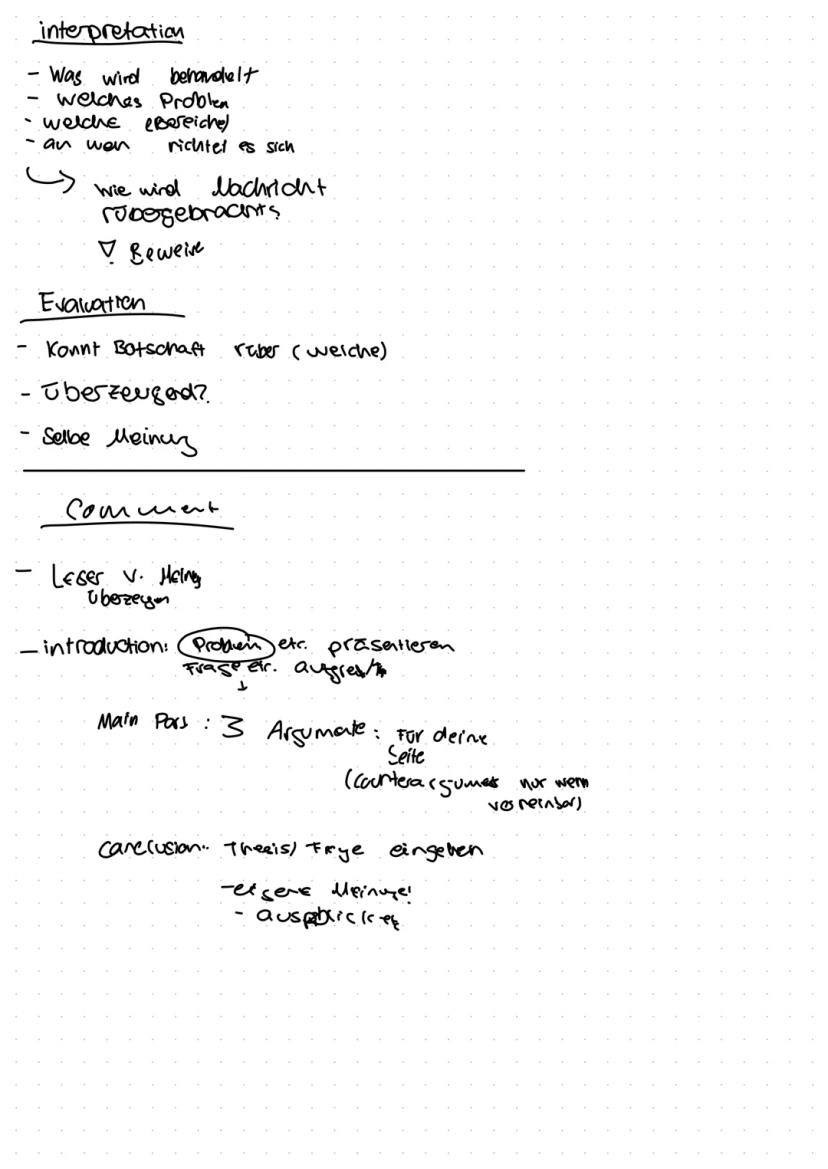 interpretation
- Was wird behandelt
- welches Problem
- welche (Bereiche)
- an wen richtet es sich
wie wird Nachricht
rübergebracht?
! Beweise
Evaluation
- Kommt Botschaft rüber (welche)
- überzeugend?
- Selbe Meinung
Comment
- Leser v. Meinung
überzeugen
- introduction: Problem etc. präsentieren
Frage etc.
Main Part: 3 Argumente: Für deine
Seite
(Counterargument nur wenn
vereinbar)
Conclusion: Thesis/ Frage eingehen
- eigene Meinung!